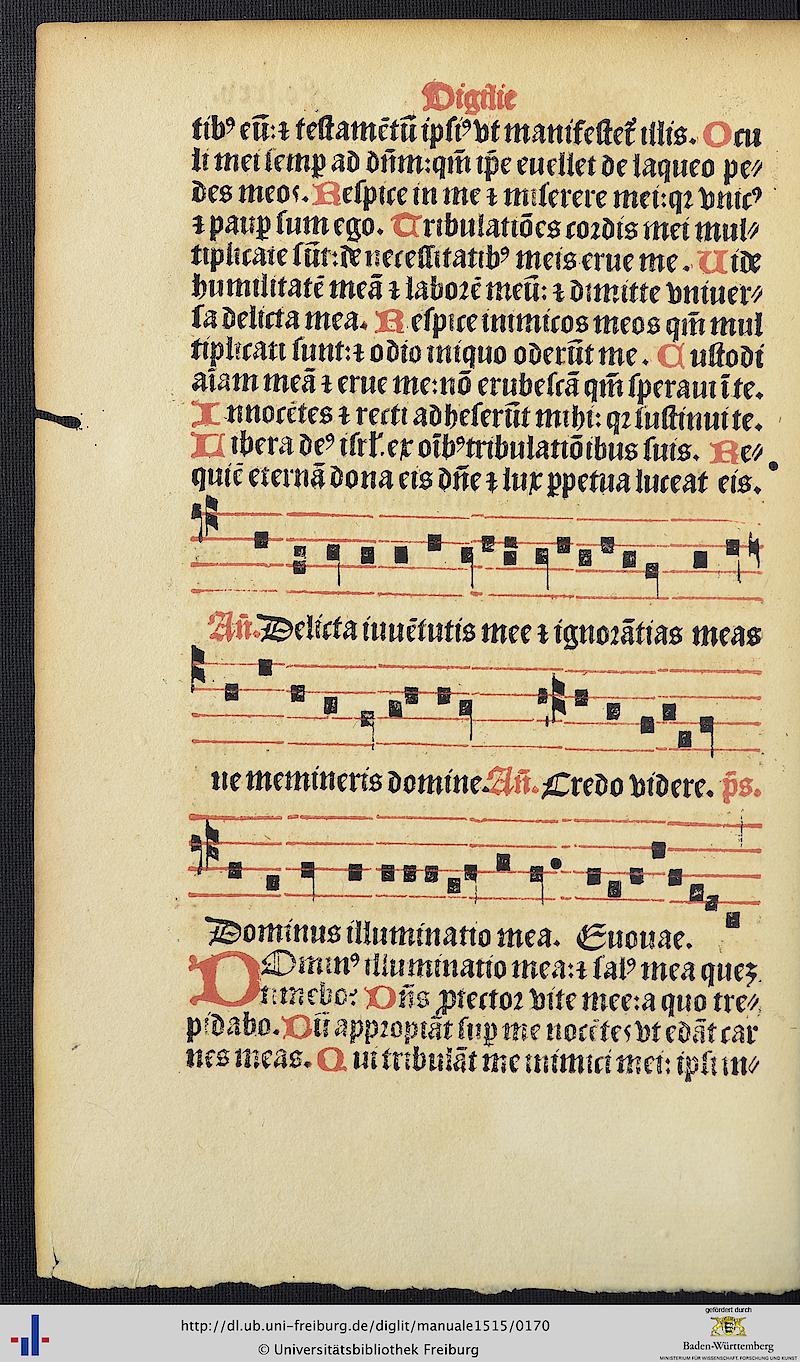 Vigilie
tibꝰ eū:⁊ testamētū ipsiꝰ vt manifestet᷑ illis. Ocu
li mei semꝑ ad dn̄m:qm̄ ip̄e euellet de laqueo pe⸗
des meos. Respice in me ⁊ miserere mei:qꝛ vnicꝰ
⁊ pauꝑ sum ego. Tribulatiōes cordis mei mul⸗
tiplicate sūt:de necessitatibꝰ meis erue me. Uide
humilitatē meā ⁊ laborē meū: ⁊ dimitte vniuer⸗
sa delicta mea. Respice inimicos meos qm̄ mul
tiplicati sunt:⁊ odio iniquo oderūt me. Custodi
aīam meā ⁊ erue me:nō erubescā qm̄ speraui ī te.
Innocētes ⁊ recti adheserūt mihi: qꝛ sustinui te.
Libera deꝰ isrl̓.ex oīb̓ꝰ tribulatiōibus suis. Re⸗
quiē eternā dona eis dn̄e ⁊ lux ꝑpetua luceat eis.
An̄. Delicta iuuētutis mee ⁊ ignorātias meas
ne memineris domine. An̄. Credo videre. p̄s.
Dominus illuminatio mea. Euouae.
DOminꝰ illuminatio mea:⁊ salꝰ mea quez
timebo: Dn̄s ꝓtector vite mee:a quo tre⸗
pidabo. Dū appropiāt suꝑ me nocētes vt edāt car
nes meas. Qui tribulāt me inimici mei: ipsi in⸗
http://dl.ub.uni-freiburg.de/diglit/manuale1515/0170
© Universitätsbibliothek Freiburg
gefördert durch
Baden-Württemberg
MINISTERIUM FÜR WISSENSCHAFT, FORSCHUNG UND KUNST